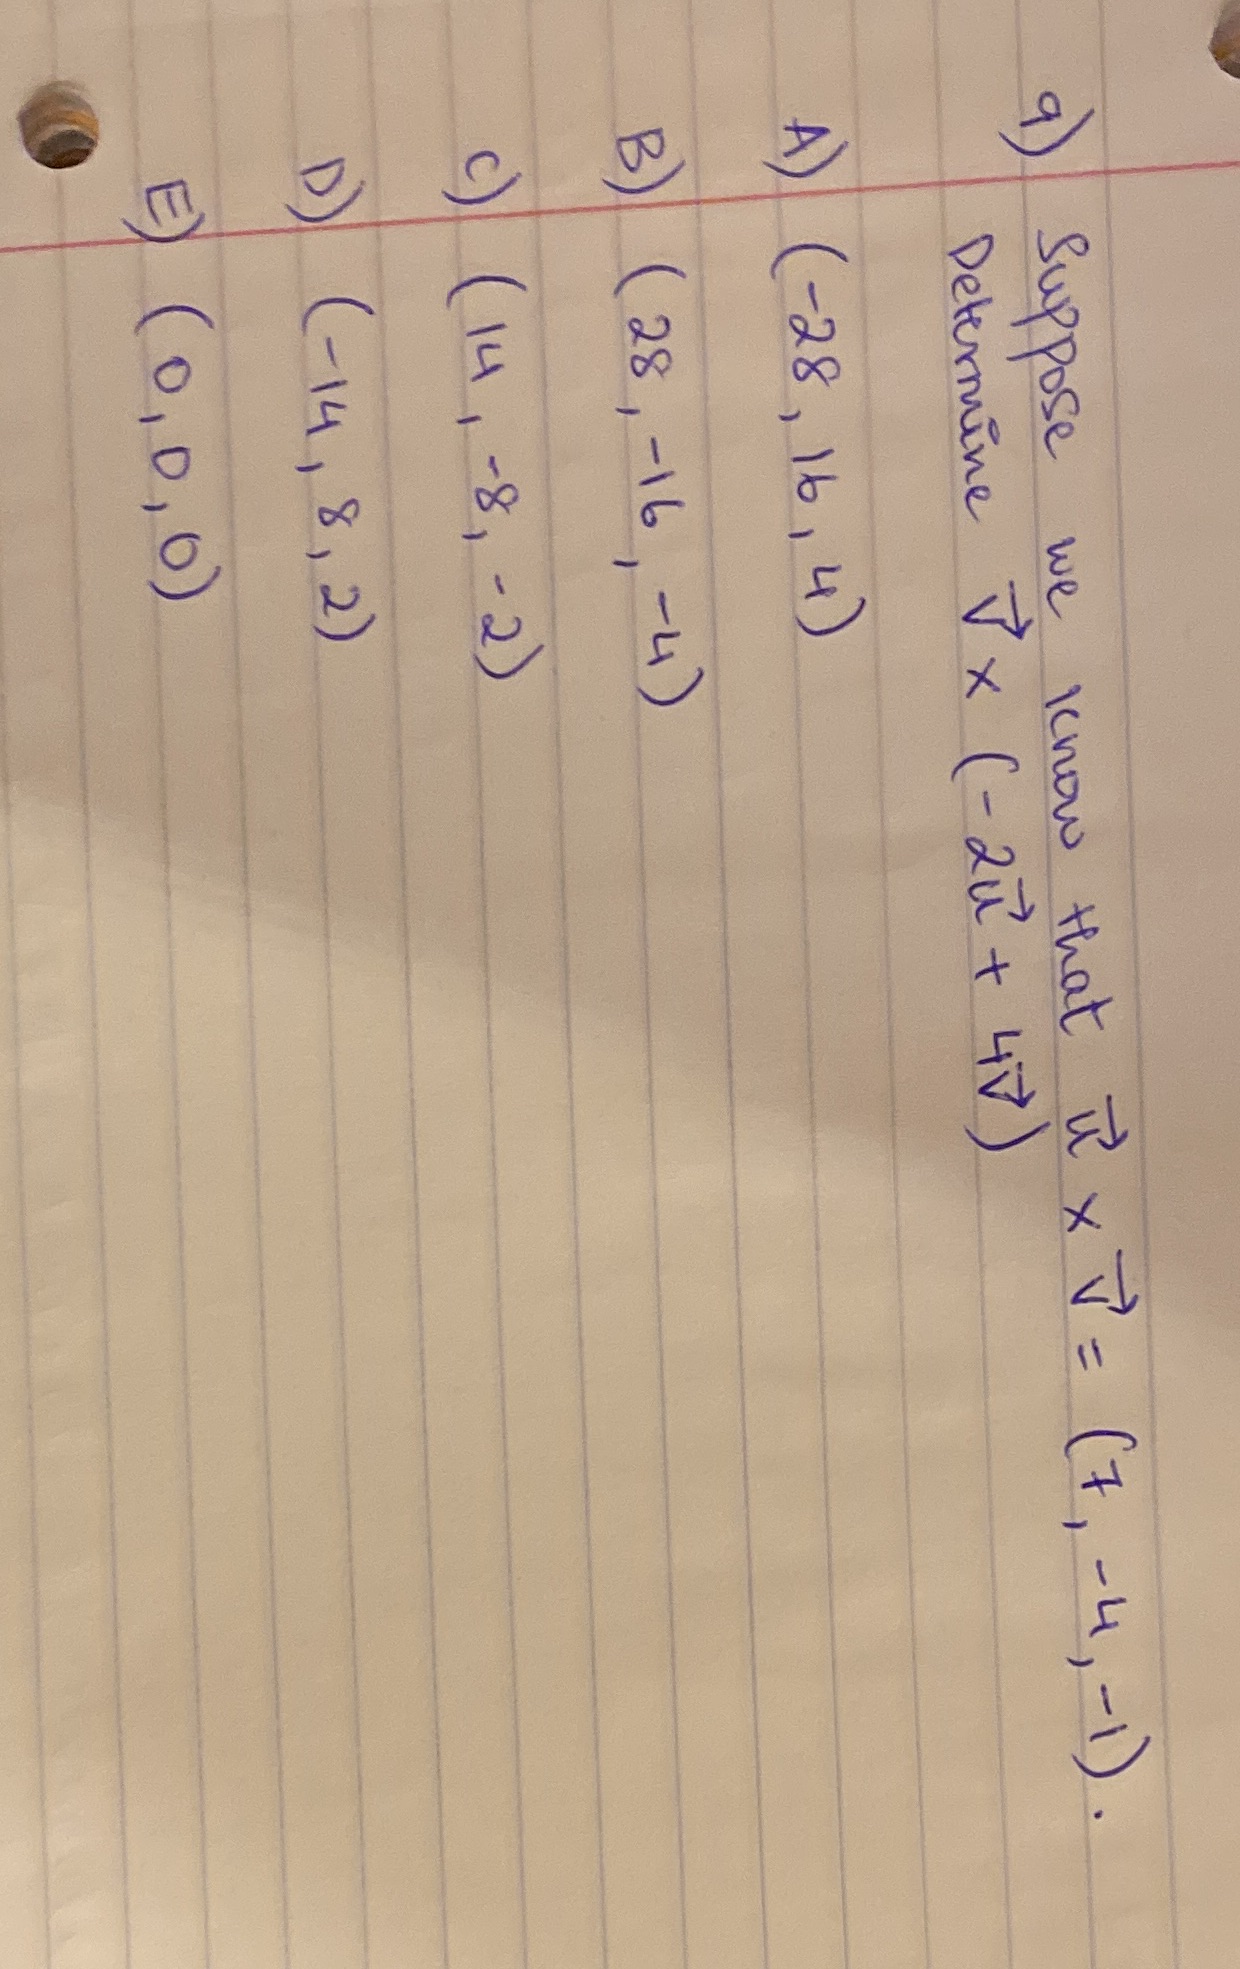 9) Suppose we know that u⃗ × v⃗ = (7, -4, -1).
Determine v⃗ × (-2u⃗ + 4v⃗)
A) (-28, 16, 4)
B) (28, -16, -4)
C) (14, -8, -2)
D) (-14, 8, 2)
E) (0, 0, 0)